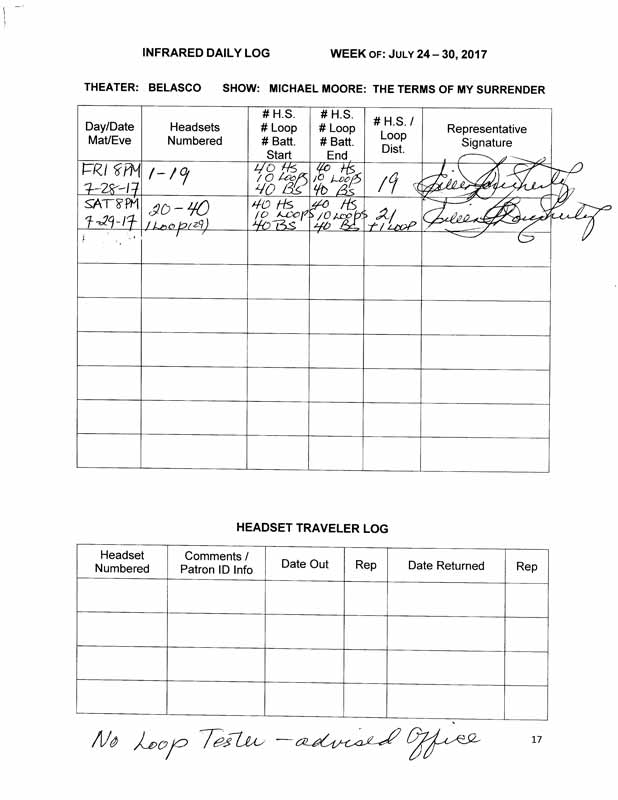 INFRARED DAILY LOG WEEK OF: JULY 24 – 30, 2017
THEATER: BELASCO SHOW: MICHAEL MOORE: THE TERMS OF MY SURRENDER
Day/Date
Mat/Eve
Headsets
Numbered
# H.S.
# Loop
# Batt.
Start
# H.S.
# Loop
# Batt.
End
# H.S. /
Loop
Dist.
Representative
Signature
FRI 8PM
7-28-17
1-19
40 HS
10 LOOPS
40 BS
40 HS
10 LOOPS
40 BS
19
Eileen Dougherty
SAT 8PM
7-29-17
20-40
1 LOOP (29)
40 HS
10 LOOPS
40 BS
40 HS
10 LOOPS
40 BS
21
+1 LOOP
Eileen Dougherty
HEADSET TRAVELER LOG
Headset
Numbered
Comments /
Patron ID Info
Date Out
Rep
Date Returned
Rep
No Loop Tester - advised Office
17